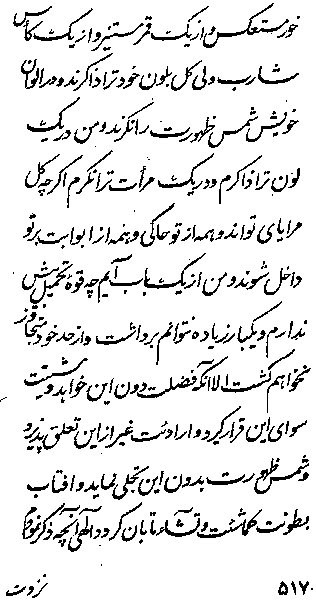 خور مستعکس و از یک قمر مستنیر و از یک کأس
شارب ولی کل بلون خود ترا ذاکرند و در الوان
خویش شمس ظهورت را نگرند و من در یک
لون ترا ذاکرم و در یک مرآت ترا نگرم اگرچه کل
مرایای تواند و همه از تو حاکی و همه از ابوابت بر تو
داخل شوند و من از یک باب آیم چه قوه تحمل بیش
ندارم و یکبار زیاده نتوانم برداشت و از حد خود تجاوز
نخواهم گشت الا آنکه فضلت دون این خواهد و مشیتت
سوای این قرار گیرد و ارادتت غیر از این تعلق پذیرد
و شمس ظهورت بدون این تجلی نماید و افتاب
بطونت کماشئت و تشاء تابان گردد الهی آنچه ذکر نموده‌ام
۵۱۷ نزدت